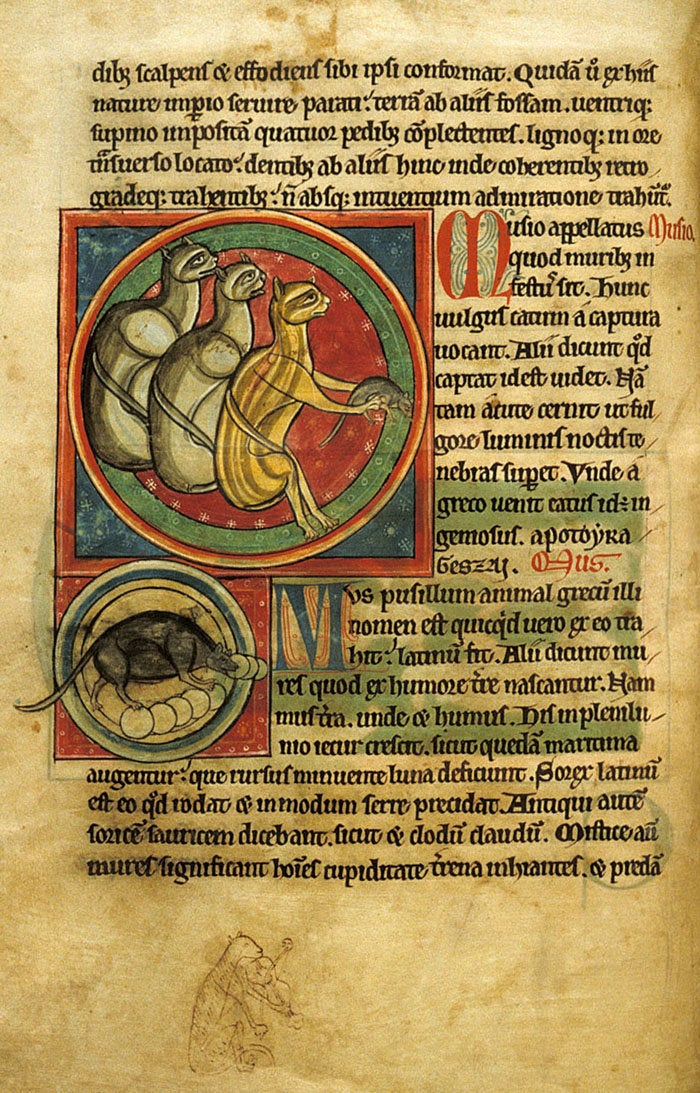 dibꝫ scalpens & effodiens sibi ipsi conformat. Quidā ỻ ex hiis
nature imp̄io seruire parati. terrā ab aliis fossam. uentriq:
supino impositā quatuor pedibꝫ cōplectentes. lignoq: in ore
tͣnsuerso locato. dentibꝫ ab aliis hinc inde coherentibꝫ retro
gradeq: trahentibꝫ. n̄ absq: intuentium admiratione trahūt᷑.
Musio appellatus Musio.
quod muribꝫ in
festus sit. Hunc
uulgus catum a captura
uocant. Alii dicunt qd̓
captat id est uidet. Nā
tam acute cernit ut ful
gore luminis noctis te
nebras sup̄et. Vnde a
greco uenit catus id: in
gemosus. apotoyka
geszaj. Mus.
Mvs pusillum animal grecū illi
nomen est quicq̓d uero ex eo tra
hit. latinū fit. Alii dicunt mu
res quod ex humore t̓re nascantur. Nam
mus t̓ra. unde & humus. His in plenilu
nio iecur crescit. sicut quedā maritima
augentur. que rursus minuente luna deficiunt. Sorex latinū
est eo qd̓ rodat & in modum serre precidat. Antiqui autē
soricē sauricem dicebant. sicut & clodū claudū. Mistice aū
mures significant hoīes cupiditate t̓rena inhiantes. & predā